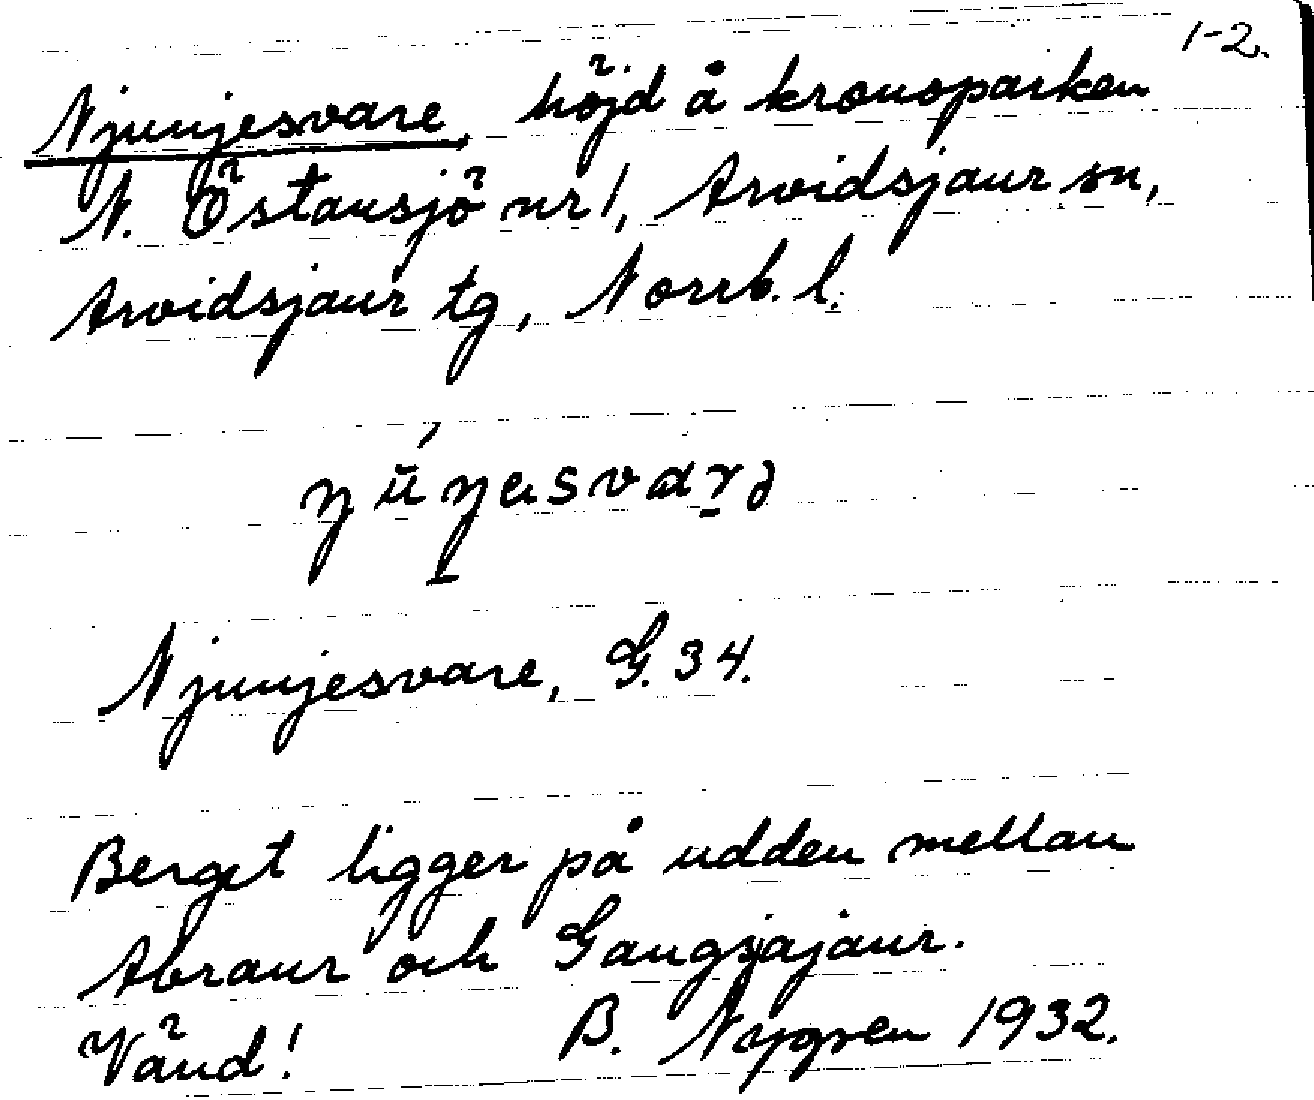 1-2.
Njunjesvare, höjd å kronoparken
N. Östansjö nr 1, Arvidsjaur sn,
Arvidsjaur tg, Norrb. l.
Njunjesvare, G. 34.
Berget ligger på udden mellan
Abraur och Gangsjajaur.
Vänd! B. Nygren 1932.